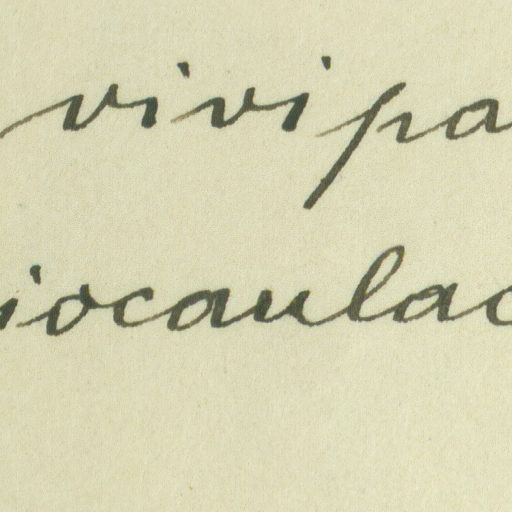 vivipa
iocaulac